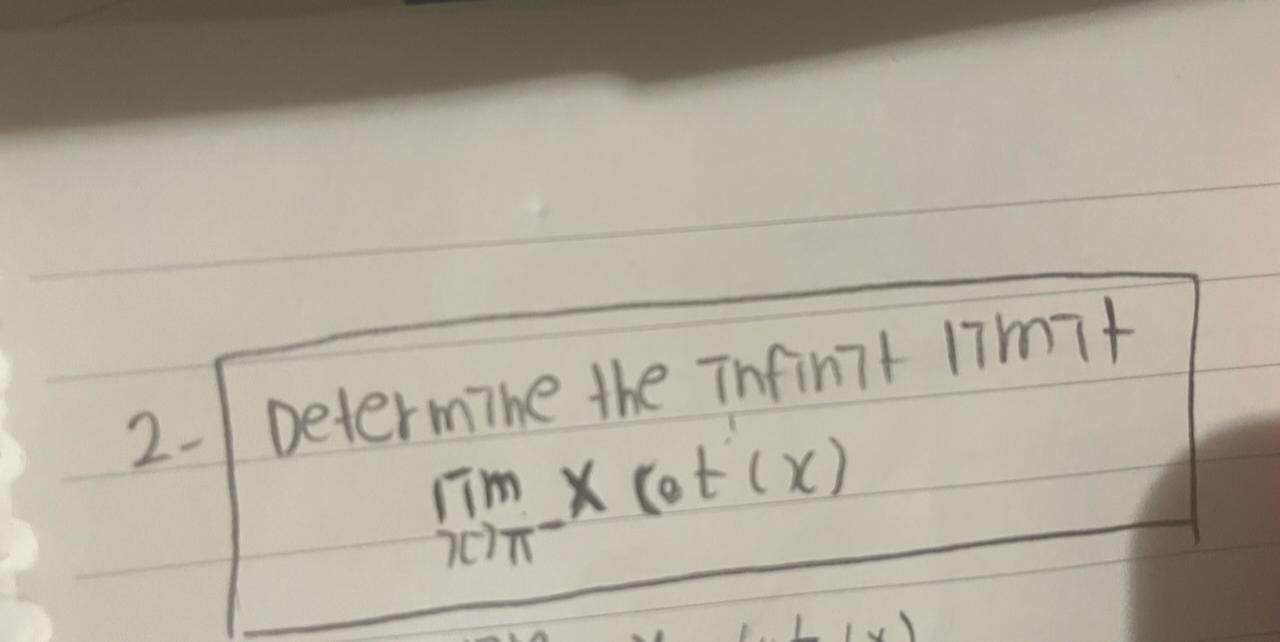 2- Determine the infinit limit
lim x cot (x)
x→π⁻
(x)